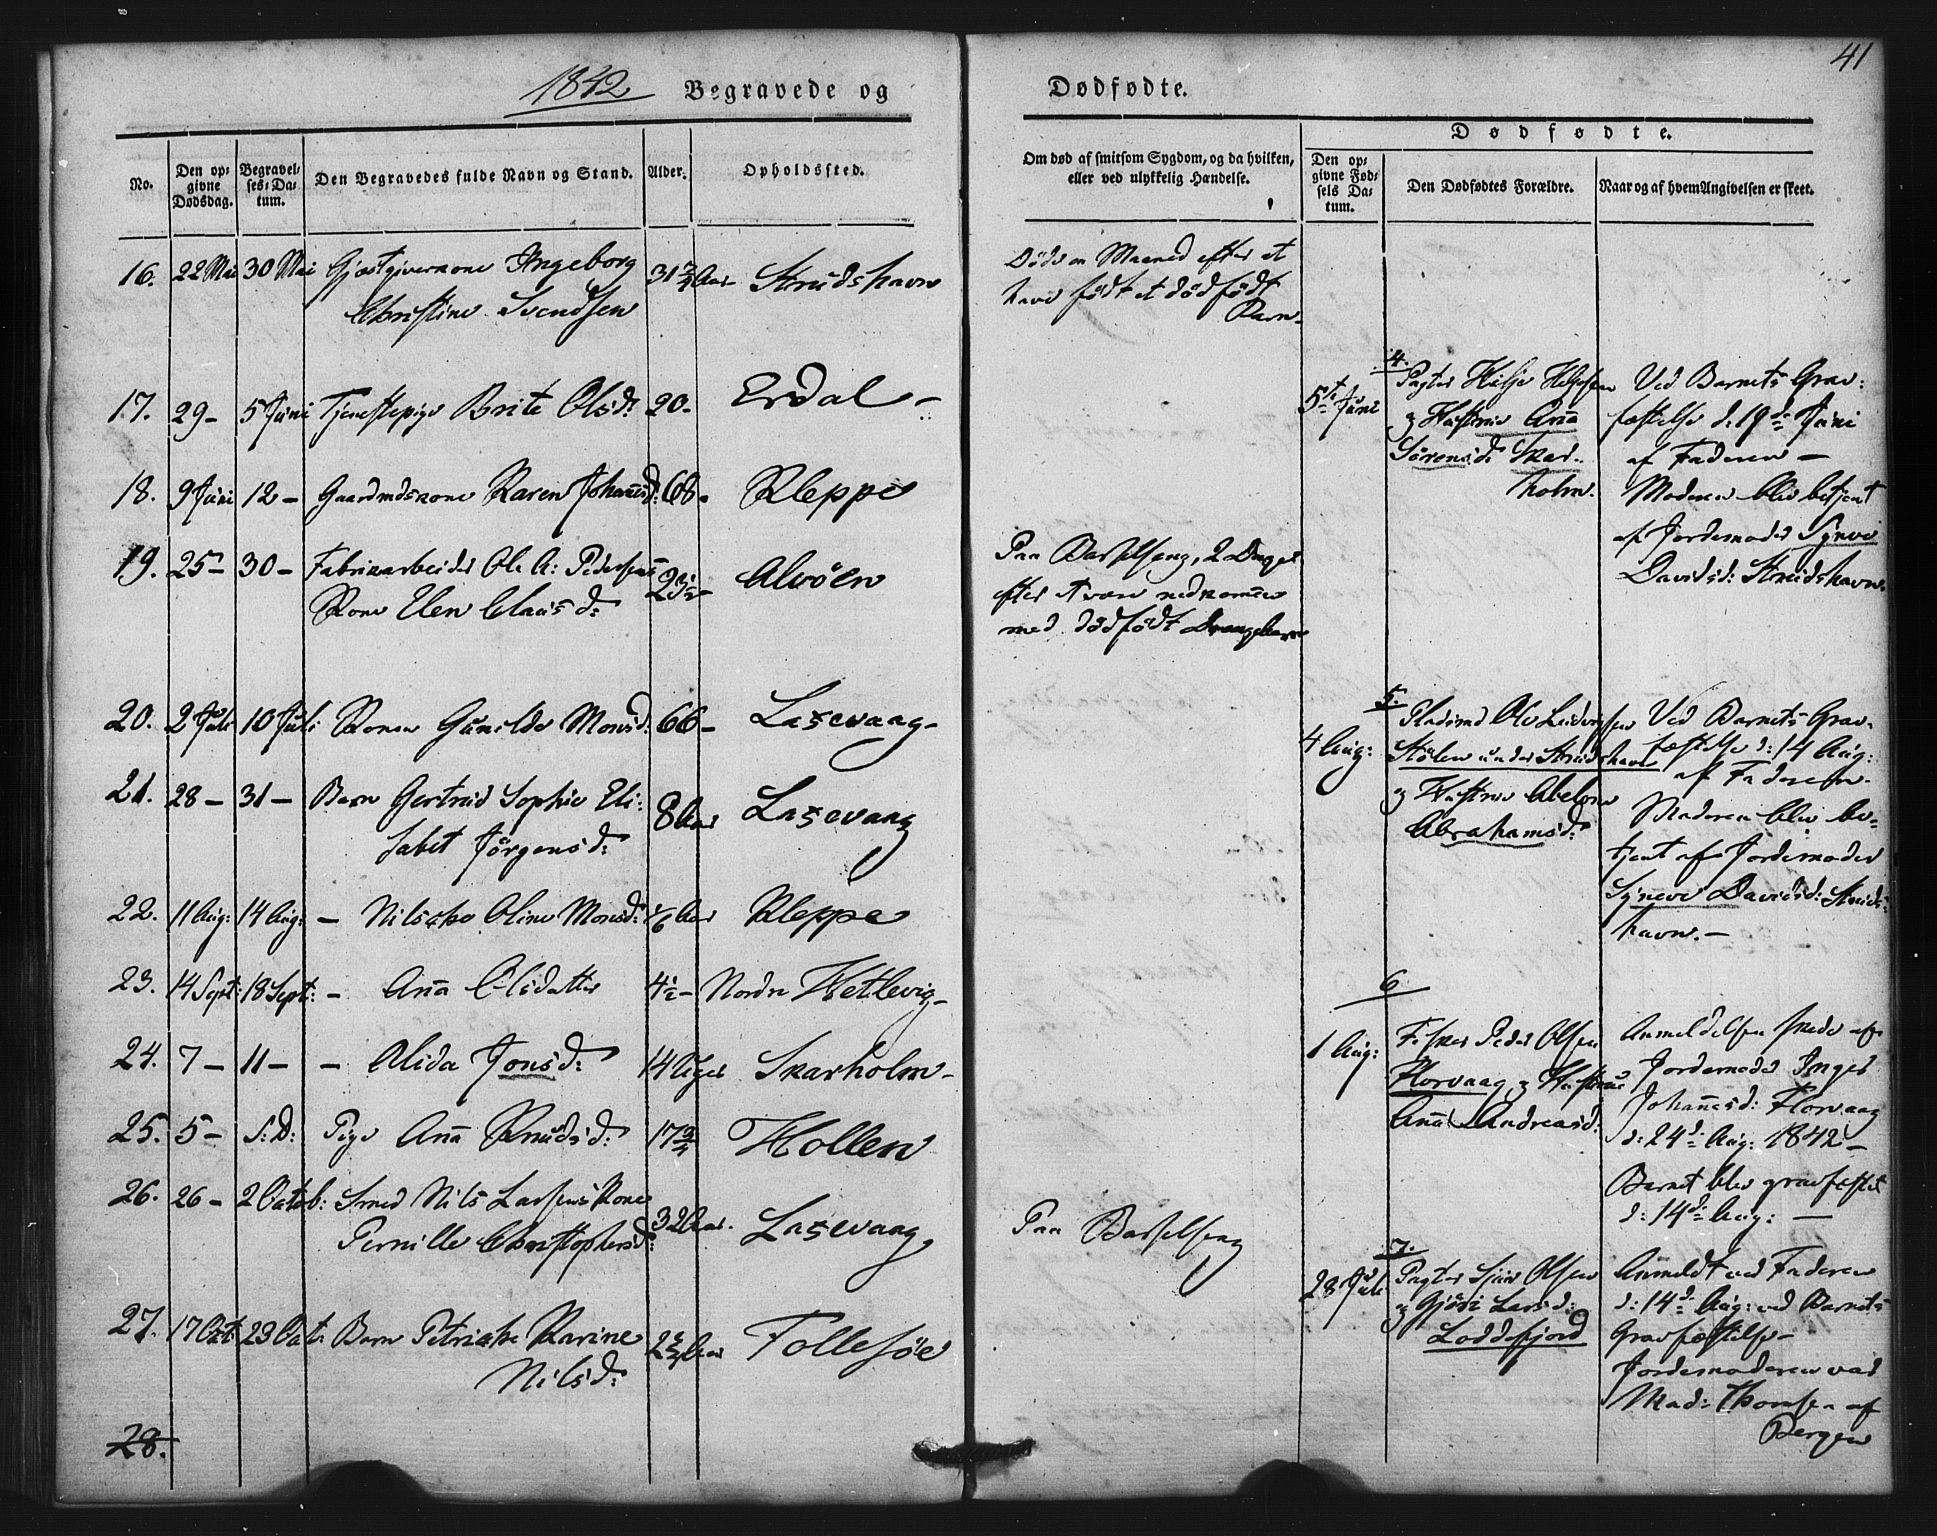 41
1842 Begravede og Dødfødte.
No.
Den op-
givne
Dødsdag.
Begravel-
ses-Da-
tum.
Den Begravedes fulde Navn og Stand.
Alder.
Opholdssted.
Om død af smitsom Sygdom, og da hvilken,
eller ved ulykkelig Hændelse.
Dødfødte.
Den op-
givne Fød-
sels Da-
tum.
Den Dødfødtes Forældre.
Naar og af hvem Angivelsen er skeet.
16. 22 Mai 30 Mai Gjæstgiverkone Ingeborg 31 Aar Strudshavn
Christine Svendsen
Døde en Maaned efter at
have født et dødfødt
Barn.
17. 29 - 5 Juni Tjenestepige Brite Olsd: 20 - Erdal -
18. 9 Juni 12 - Gaardmdskone Karen Johannsd: 68 - Kleppe
19. 25 - 30 - Fabrikarbeider Ole A: Pedersens 23½ - Alvøen
Kone Elen Claus d:
Paa Barselseng, 2 Dage
efter at være nedkommen
med dødfødt Drengebarn
20. 2 Juli 10 Juli Konen Gunilde Monsd: 66 - Laxevaag -
21. 28 - 31 - Barn Gertrud Sophie Eli- 8 Aar Laxevaag
sabet Jörgensd:
22. 11 Aug: 14 Aug: - Nilsche Oline Monsd: Aar Kleppe
23. 14 Sept: 18 Sept: - Aña Olsdatter 4½ - Nordre Hetlevig -
24. 7 - 11 - - Alida Jonsd: 14 Uger Skarholm -
25. 5 - S: D: Pige Aña Knudsd: 17¾ Hollen
26. 26 - 2 Octob: Smed Nils Larsens Kone 32 Aar. Laxevaag
Pernille Christophersd:
Paa Barselseng
27. 17 Oct: 23 Oct: Barn Petriche Karine 2 Aar Follesöe
Nilsd:
28.
4.
5te Juni
Pagter Helje Heljesen
og Hustrue Aña
Sörensd: Skar-
holm.
Ved Barnets Grav-
fæstelse d: 19de Juni
af Faderen -
Moderen blev betjent
af Jordemoder Synve
Davidsd: Strudshavn.
5.
4 Aug:
Pladsmd Ole
Stölen under Strudshavn
og Hustrue Abelone
Abrahamsd:
Ved Barnets Grav-
fæstelse d: 14 Aug:
af Faderen.
Moderen blev be-
tjent af Jordemoder
Syneve Davidsd: Struds-
havn. -
6
1 Aug:
Fisker Peder Olsen
Florvaag og Hustrue
Aña Andreasd:
Anmeldelsen skede af
Jordemoder Inger
Johannesd: Florvaag
d: 24de Aug: 1842 -
Barnet blev gravfæstet
d: 14de Aug: -
7.
28 Juli
Pagter Sjur Olsen
og Gjöri Larsd:
Loddefjord
Anmeldt ved Faderen
d: 14de Aug: ved Barnets
Gravfæstelse -
Jordemoderen var
Mad: Thomsen af
Bergen